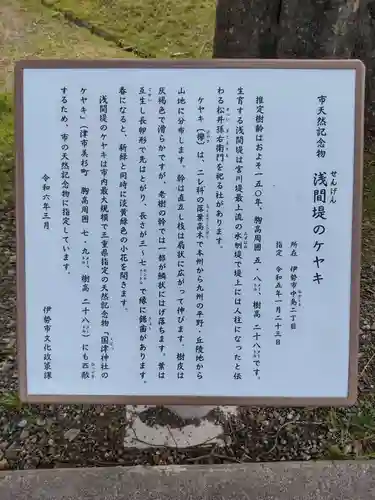 市天然記念物
浅間堤のケヤキ
せんげん
所在 伊勢市中島二丁目
指定 令和五年一月二十三日
推定樹齢はおよそ一五〇年、胸高周囲 五・八㍍、樹高 二十八㍍です。
生育する浅間堤は宮川堤最上流の水刎堤で堤上には人柱になったと伝
わる松井孫右衛門を祀る社があります。
ケヤキ（欅）は、ニレ科の落葉高木で本州から九州の平野・丘陵地から
山地に分布します。幹は直立し枝は扇状に広がって伸びます。樹皮は
灰褐色で滑らかですが、老樹の幹では一部が鱗状にはげ落ちます。葉は
互生し長卵形で先はとがり、長さが三～七㌢㍍で縁に鋸歯があります。
春になると、新緑と同時に淡黄緑色の小花を開きます。
浅間堤のケヤキは市内最大規模で三重県指定の天然記念物「国津神社の
ケヤキ」（津市美杉町 胸高周囲 七・九㍍、樹高 二十八㍍）にも匹敵
するため、市の天然記念物に指定しています。
令和六年三月
伊勢市文化政策課